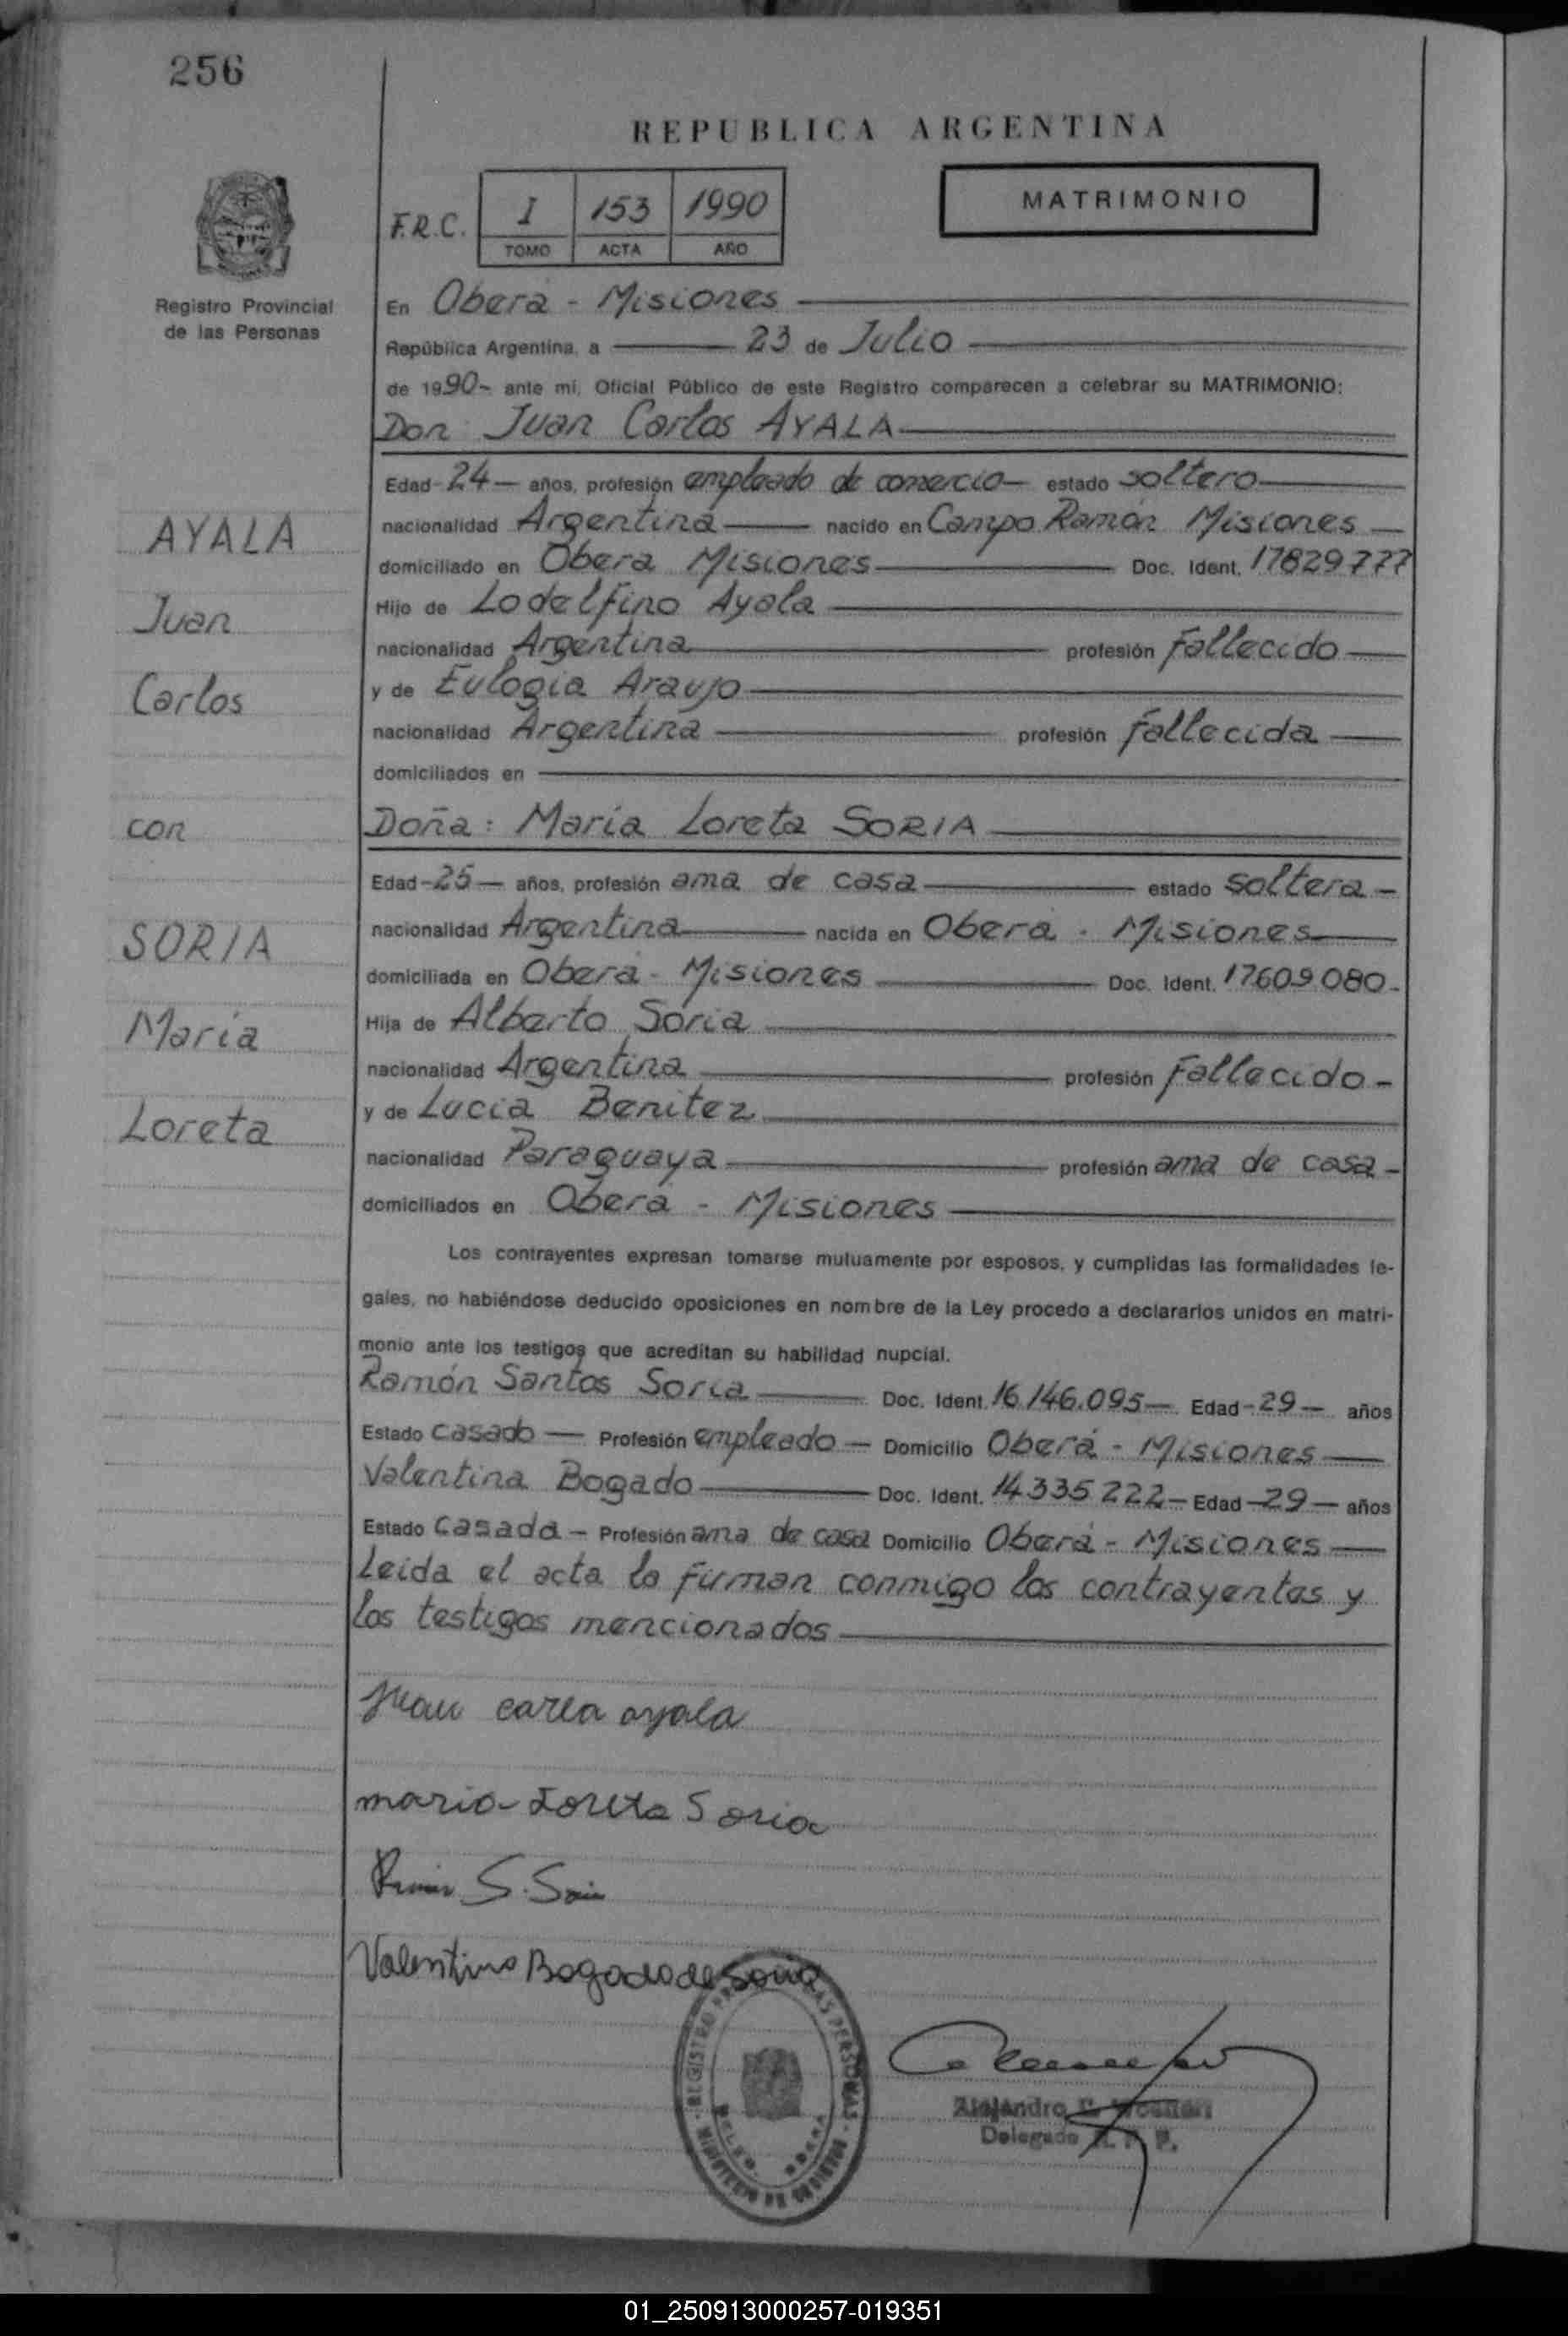 256
REPUBLICA ARGENTINA
MATRIMONIO
F.R.C. I 153 1990
TOMO ACTA AÑO
Registro Provincial
de las Personas
En Oberá - Misiones
República Argentina, a 23 de Julio
de 1990- ante mi, Oficial Público de este Registro comparecen a celebrar su MATRIMONIO:
Don Juan Carlos AYALA
Edad-24- años, profesión empleado de comercio- estado soltero
nacionalidad Argentina nacido en Campo Ramón Misiones
domiciliado en Oberá Misiones Doc. Ident. 17829777
Hijo de Lodelfino Ayala
nacionalidad Argentina profesión Fallecido
y de Eulogia Araujo
nacionalidad Argentina profesión fallecida
domiciliados en
Doña: María Loreta SORIA
Edad-25- años, profesión ama de casa estado soltera-
nacionalidad Argentina nacida en Oberá - Misiones
domiciliada en Oberá - Misiones Doc. Ident. 17609080-
Hija de Alberto Soria
nacionalidad Argentina profesión Fallecido-
y de Lucia Benitez
nacionalidad Paraguaya profesión ama de casa-
domiciliados en Oberá - Misiones
AYALA
Juan
Carlos
con
SORIA
María
Loreta
Los contrayentes expresan tomarse mutuamente por esposos, y cumplidas las formalidades le-
gales, no habiéndose deducido oposiciones en nombre de la Ley procedo a declararlos unidos en matri-
monio ante los testigos que acreditan su habilidad nupcial.
Ramón Santos Soria Doc. Ident. 16.146.095- Edad-29- años
Estado casado - Profesión empleado - Domicilio Oberá - Misiones
Valentina Bogado Doc. Ident. 14.335.222- Edad-29- años
Estado Casada - Profesión ama de casa Domicilio Oberá - Misiones
Leida el acta la firman conmigo los contrayentes y
los testigos mencionados
Juan carlos ayala
maria Loreta Soria
S. Soria
Valentina Bogado de Soria
REGISTRO PERSONAS
MINISTERIO DE GOBIERNO
Alejandro
Delegado
01_250913000257-019351